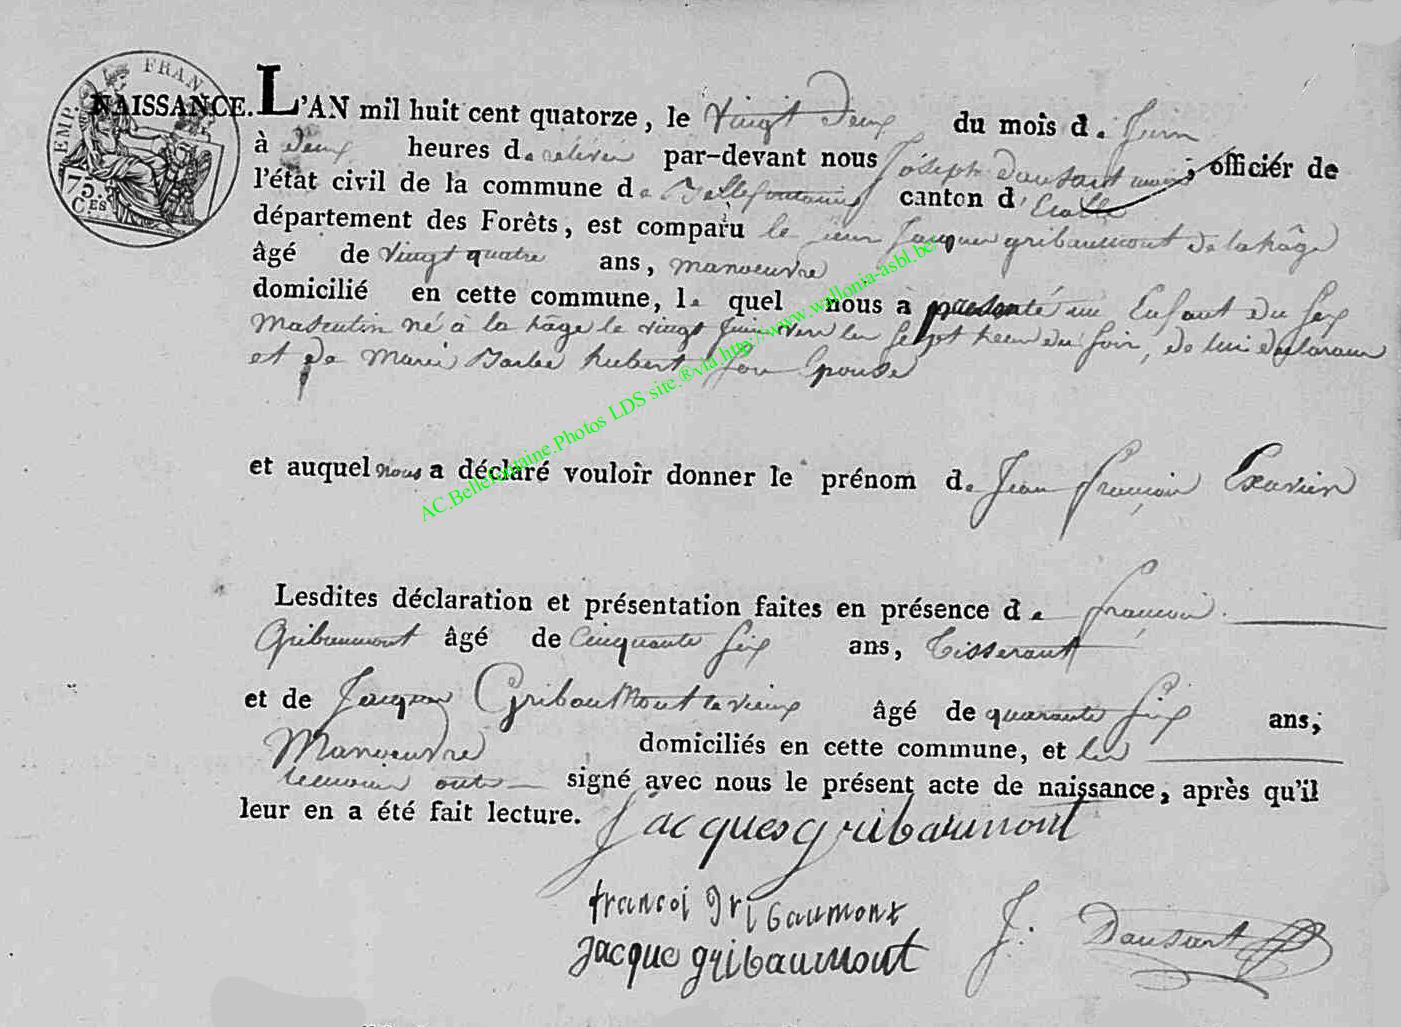 EMP. FRAN
75. CES
NAISSANCE. L'AN mil huit cent quatorze, le Vingt deux du mois d. Juin
à deux heures d. relevée par-devant nous Joseph Dausart maire, officiér de
l'état civil de la commune d. Bellefontaine canton d' Etalle
département des Forêts, est comparu le sieur Jacques gribaumont de la hâge
âgé de vingt quatre ans, manoeuvre
domicilié en cette commune, l. quel nous a présenté un Enfant du sex
Masculin né à la hâge le vingt juin vers les sept heur du soir, de lui declarant
et de Marie Barbe hubert son Epouse
et auquel nous a déclaré vouloir donner le prénom d. Jean françois Exavier
Lesdites déclaration et présentation faites en présence d. françois
Gribaumont âgé de Cinquante six ans, tisserant
et de Jacques Gribaumont le vieux âgé de quarante six ans,
Manoeuvre domiciliés en cette commune, et les
temoins ont signé avec nous le présent acte de naissance, après qu'il
leur en a été fait lecture. jacques gribaumont
francoi gribaumont
jacque gribaumont J: Dausart
AC.Bellefontaine.Photos LDS site.®via.http://www.wallonia-asbl.be/